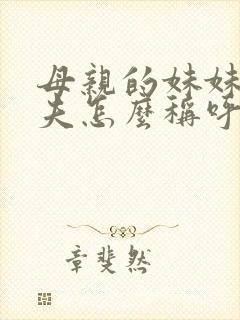 母親的妹妹
夫怎麼稱呼
章斐然